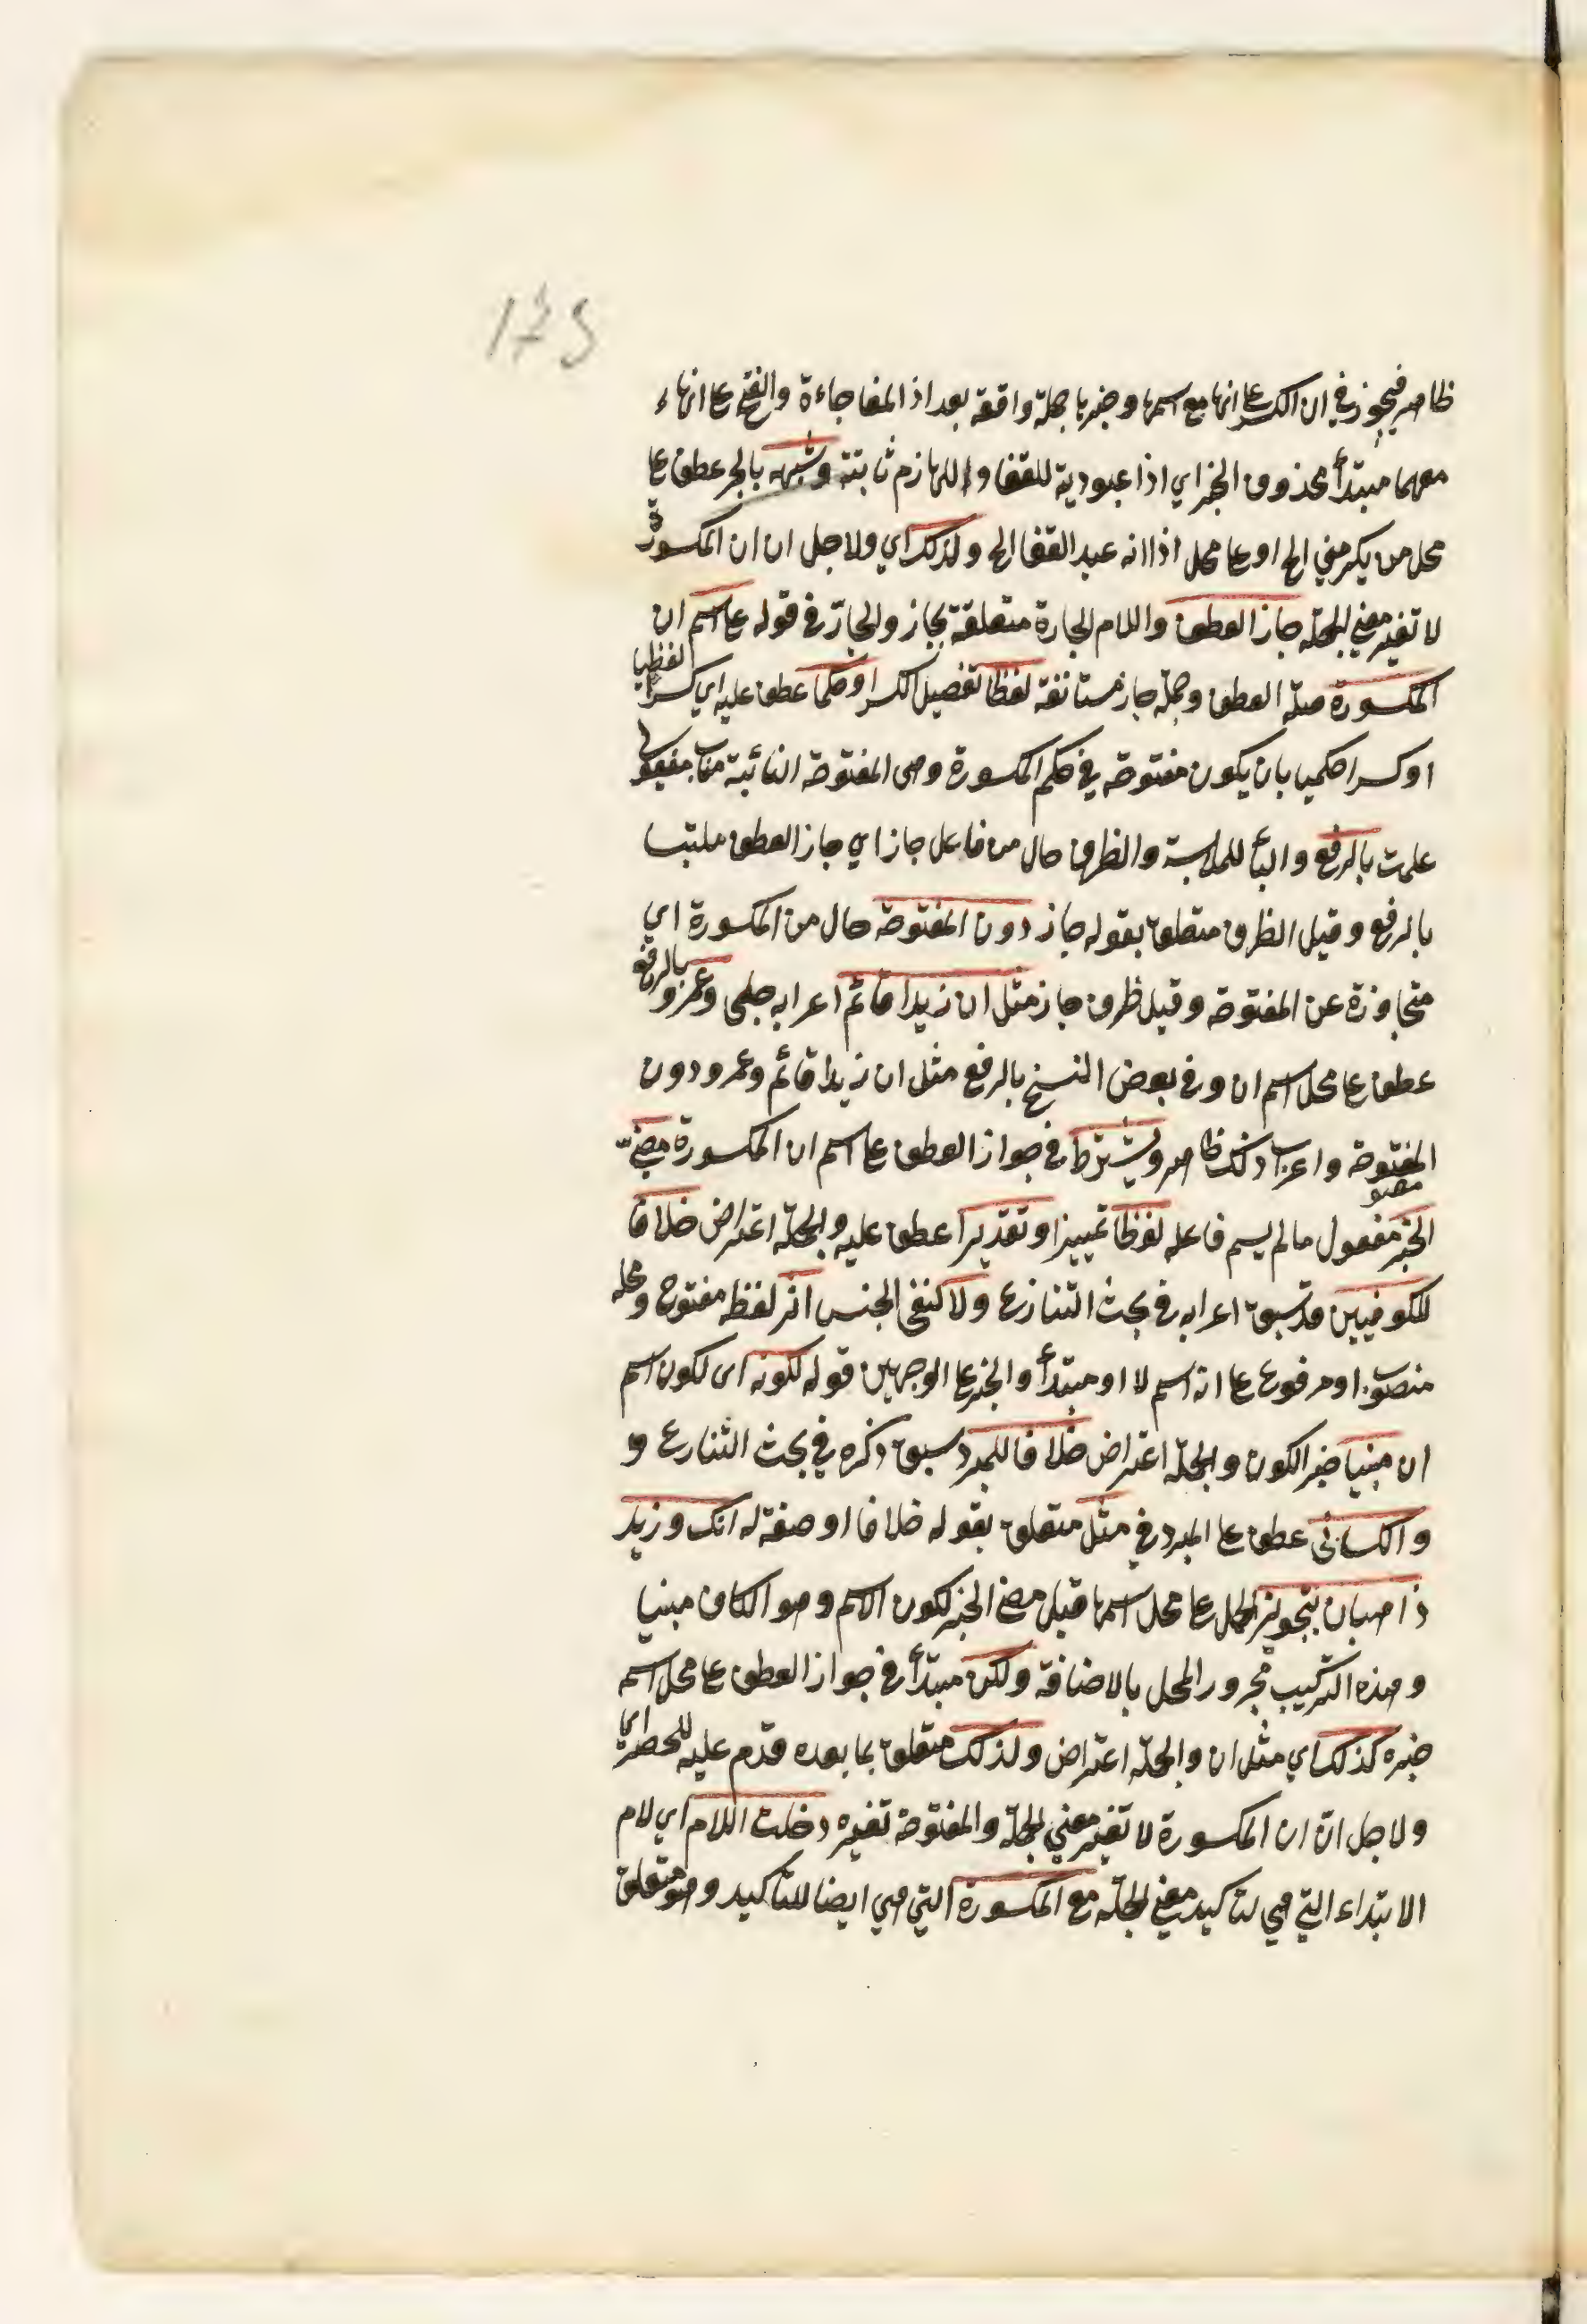 175
ظاهر فيجوز في ان الكسر على انها مع اسمها وخبرها جملة واقعة بعد اذا المفاجاءة والفتح على انها
معهما مبتدأ محذوف الخبر اي اذا عبودية للقفا واللهازم ثابتة وشبهه بالجر عطف على
محل من يكرمني الخ او على محل اذا انه عبد القفا الخ ولذلك اي ولاجل ان ان المكسورة
لا تغير معني الجملة جاز العطف واللام الجارة متعلقة بجاز والجار في قوله على اسم ان
المكسورة صلة العطف وجملة جاز مستانفة لفظا تفصيل الكسر او حكما عطف عليه اي كسرا لفظيا
او كسرا حكميا بان يكون مفتوحة في حكم المكسورة وهي المفتوحة النائبة مناب مفعولي
علمت بالرفع والباء للملابسة والظرف حال من فاعل جاز اي جاز العطف ملتبسا
بالرفع وقيل الظرف متعلق بقوله جاز دون المفتوحة حال من المكسورة اي
متجاوزة عن المفتوحة وقيل ظرف جاز مثل ان زيدا قائم اعرابه جلي وعمرو بالرفع
عطف على محل اسم ان وفي بعض النسخ بالرفع مثل ان زيدا قائم وعمرو دون
المفتوحة واعراب ذلك ظاهر ويشترط في جواز العطف على اسم ان المكسورة مضي
الخبر مفعول ما لم يسم فاعله لفظا تمييز او تقديرا عطف عليه والجملة اعتراض خلافا
للكوفيين قد سبق اعرابه في بحث التنازع ولا لنفي الجنس اثر لفظه مفتوح ومحله
منصوب او مرفوع على انه اسم لا او مبتدأ والخبر على الوجهين قوله لكونه اي لكون اسم
ان مبنيا خبر الكون والجملة اعتراض خلافا للمبرد سبق ذكره في بحث التنازع و
والكسائي عطف على المبرد في مثل متعلق بقوله خلافا او صفة له انك وزيد
ذاهبان بتجويز الحمل على محل اسمها قبل مضي الخبر لكون الاسم وهو الكاف مبنيا
وهذه التركيب مجرور المحل بالاضافة ولكن مبتدأ في جواز العطف على محل اسم
خبره كذلك اي مثل ان والجملة اعتراض ولذلك متعلق بما بعده قدم عليه للحصر اي
ولاجل ان ان المكسورة لا تغير معني الجملة والمفتوحة تغيره دخلت اللام اي لام
الابتداء التي هي لتاكيد معني الجملة مع المكسورة التي هي ايضا للتاكيد وهو متعلق